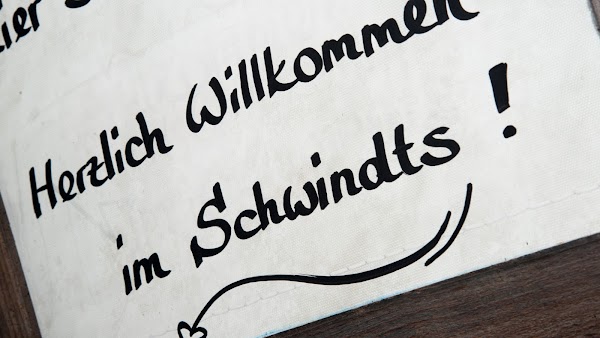 Herzlich Willkommen
im Schwindts!